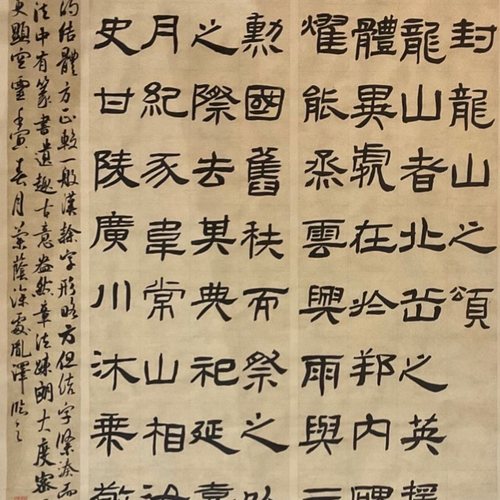 封龍山之頌
龍山者北岳之英
體異處在於邦內
燿能烝雲興雨與
勳國舊秩而祭之以
之際去其典祀延熹
月紀豕韋常山相
史甘陵廣川沐乘敬
的結體方正較一般漢隸字形略方但結字緊湊而
法中有篆書遺趣古意盎然章法疎朗大度密
更顯空靈壬寅春月蘭蔭深處胤澤臨之